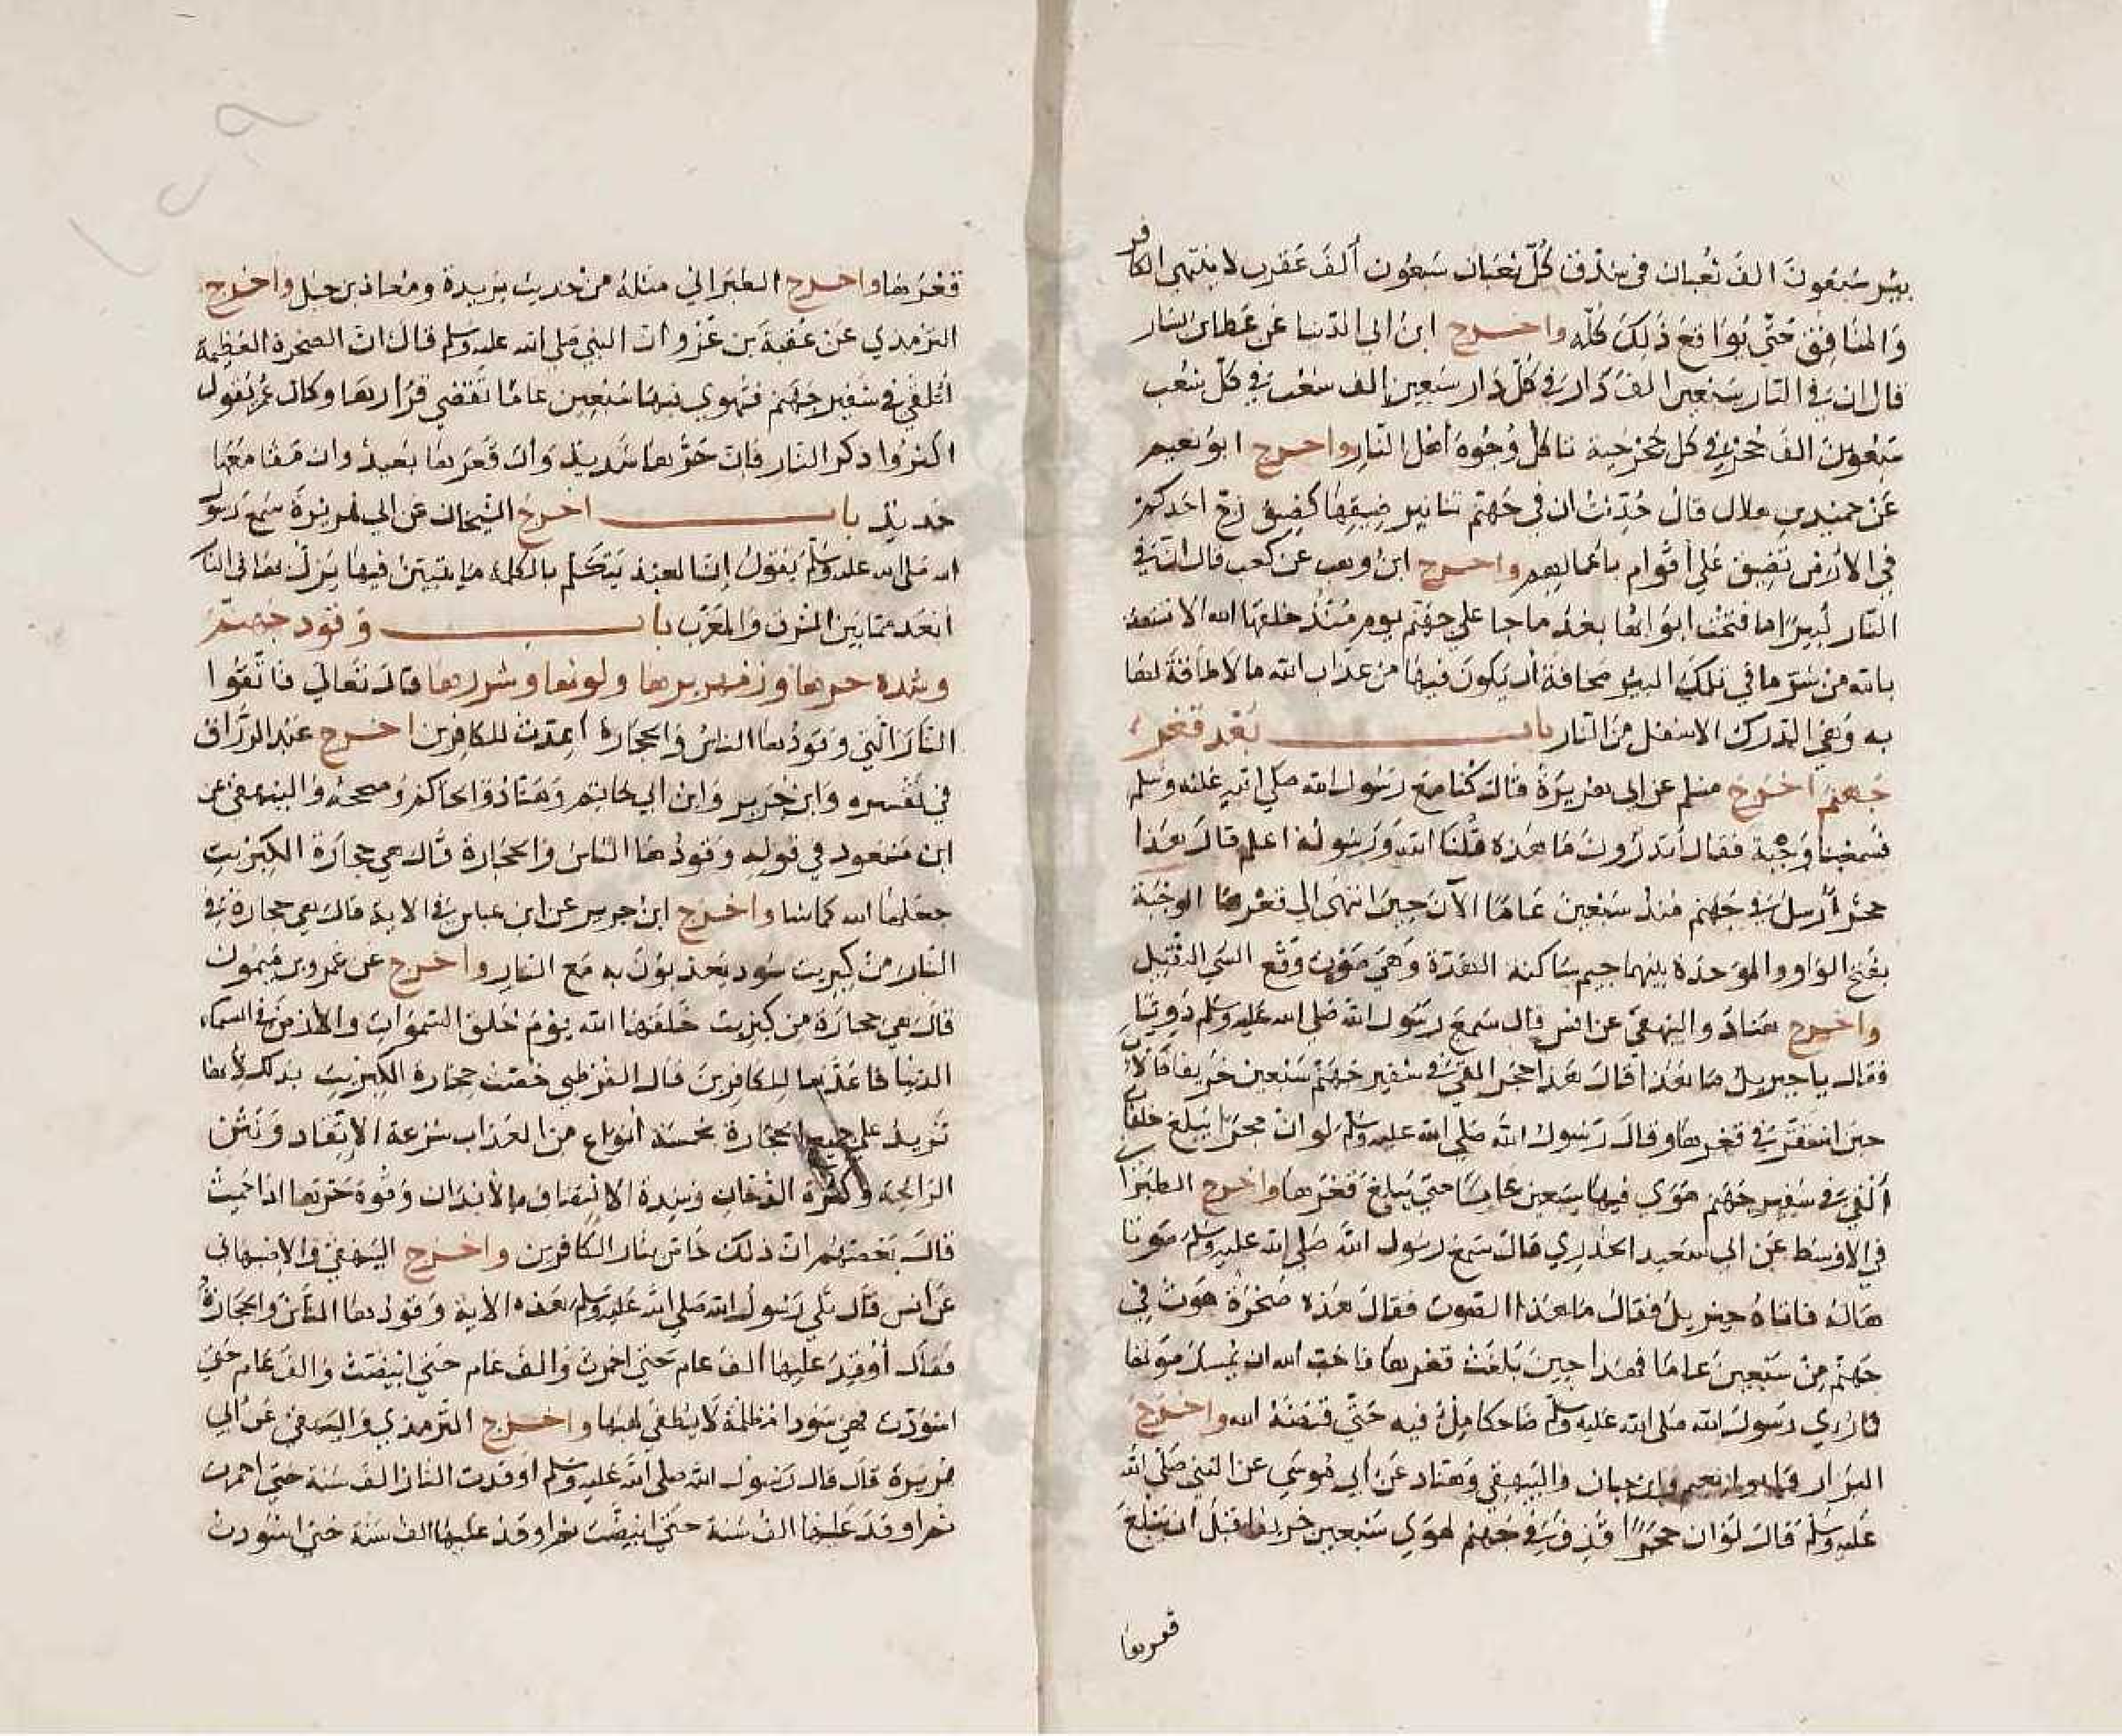 بير سبعون الف ثعبان في شدق كل ثعبان سبعون ألف عقرب لا ينتهي الكافر
والمنافق حتى يواقع ذلك كله واخرج ابن ابي الدنيا عن عطا بن يسار
قال ان في النار سبعين الف دار في كل دار سبعين الف شعب في كل شعب
سبعون الف جحر في كل جحر حية تاكل وجوه اهل النار واخرج ابو نعيم
عن حميد بن هلال قال حدثت ان في جهنم تنانير ضيقها كضيق زج احدكم
في الارض تضيق على اقوام باعمالهم واخرج ابن وهب عن كعب قال ان في
النار لبيرا ما فتحت ابوابها بعد ما جا على جهنم يوم منذ خلقها الله الا تستعيذ
بالله من شر ما في تلك البير مخافة أن يكون فيها من عذاب الله ما لا طاقة لها
به وهي الدرك الاسفل من النار باب بعد قعر
جهنم اخرج مسلم عن ابي هريرة قال كنا مع رسول الله صلي الله عليه وسلم
فسمعنا وجبة فقال أتدرون ما هذه قلنا الله ورسوله اعلم قال هذا
حجر أرسل في جهنم منذ سبعين عاما الآن حين انتهى الى قعرها الوجبة
بفتح الواو والموحدة بينهما جيم ساكنة الهدة وهي صوت وقع الشي الثقيل
واخرج هناد والبيهقي عن انس قال سمع رسول الله صلي الله عليه وسلم دويا
فقال يا جبريل ما هذا قال هذا حجر القي في شفير جهنم سبعين خريفا فالآن
حين استقر في قعرها وقال رسول الله صلي الله عليه وسلم لو ان حجرا يبلغ خلفا
ألقي في شفير جهنم هوي فيها سبعين عاما حتي يبلغ قعرها واخرج الطبرا
في الاوسط عن ابي سعيد الخدري قال سمع رسول الله صلي الله عليه وسلم صوتا
هاله فاتاه جبريل فقال ما هذا الصوت فقال هذه صخرة هوت في
جهنم من سبعين عاما فهذا حين بلغت قعرها فاحب الله ان يسمعك صوتها
فما رؤي رسول الله صلى الله عليه وسلم ضاحكا ملؤ فيه حتي قبضه الله واخرج
البزار وابن حبان والبيهقي وهناد عن ابي موسي عن النبي صلي الله
عليه وسلم قال لو ان حجرا قذف في جهنم لهوي سبعين خريفا قبل ان يبلغ
قعرها
قعرها واخرج الطبراني مثله من حديث بريدة ومعاذ بن جبل واخرج
الترمذي عن عتبة بن غزوان النبي صلي الله عليه وسلم قال ان الصخرة العظيمة
لتلقى في شفير جهنم فتهوي فيها سبعين عاما تفضي قرارها وكان عمر يقول
اكثروا ذكر النار فان حرها شديد وان قعرها بعيد وان مقامعها
حديد باب اخرج الشيخان عن ابي هريرة سمع رسول
الله صلى الله عليه وسلم يقول ان العبد يتكلم بالكلمة ما يتبين فيها يزل بها في النار
أبعد مما بين المشرق والمغرب باب وقود جهنم
وشدة حرها وزمهريرها ولونها وشررها قال تعالى فاتقوا
النار التي وقودها الناس والحجارة أعدت للكافرين اخرج عبد الرزاق
في تفسيره وابن جرير وابن ابي حاتم وهناد والحاكم وصححه والبيهقي عن
ابن مسعود في قوله وقودها الناس والحجارة قال هي حجارة الكبريت
جعلها الله كما شا واخرج ابن جرير عن ابن عباس في الاية قال هي حجارة في
النار من كبريت سود يعذبون به مع النار واخرج عن عمرو بن ميمون
قال هي حجارة من كبريت خلقها الله يوم خلق السموات والارض في السماء
الدنيا فاعدها للكافرين قال القرطبي خصت حجارة الكبريت بذلك لأنها
تزيد على جميع الحجارة بخمسة أنواع من العذاب سرعة الإتقاد ونتن
الرائحة وكثرة الدخان وشدة الالتصاق بالأبدان وقوة حرها اذا حميت
قال بعضهم ان ذلك خاص بنار الكافرين واخرج البيهقي والاصبهاني
عن انس قال تلي رسول الله صلي الله عليه وسلم هذه الاية وقودها الناس والحجارة
فقال أوقد عليها الف عام حتي احمرت والف عام حتي ابيضت والف عام حتي
اسودت فهي سودا مظلمة لا ينطفي لهبها واخرج الترمذي والبيهقي عن ابي
هريرة قال قال رسول الله صلى الله عليه وسلم اوقدت النار الف سنة حتي احمرت
ثم اوقد عليها الف سنة حتي ابيضت ثم اوقد عليها الف سنة حتي اسودت